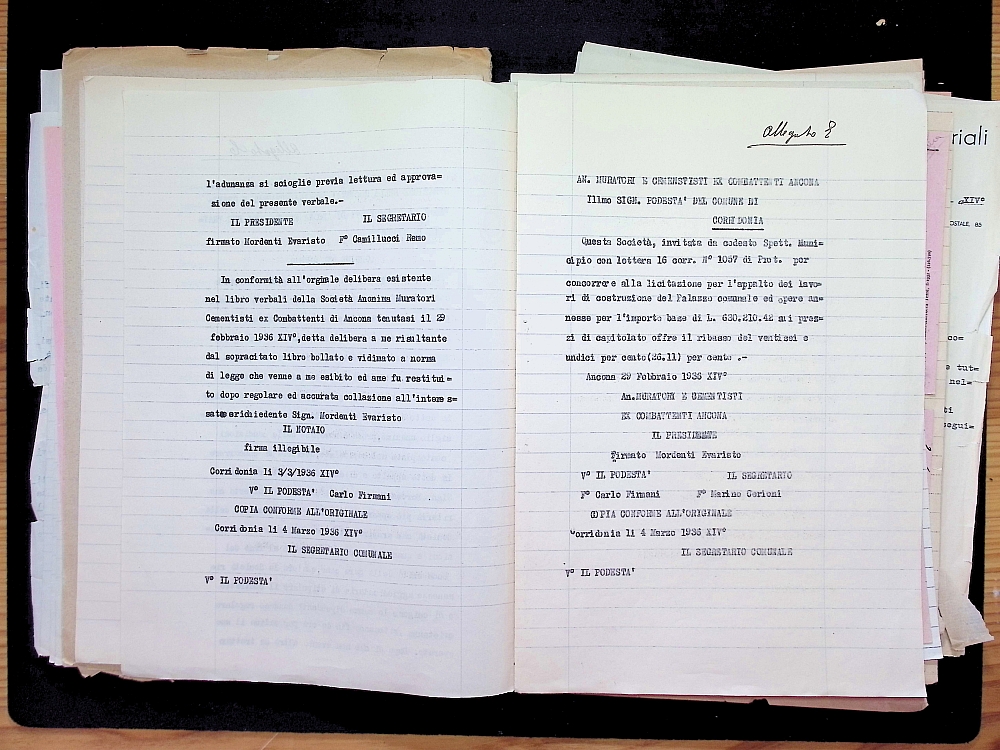 l'adunanza si scioglie previa lettura ed approva=
zione del presente verbale.-
IL PRESIDENTE IL SEGRETARIO
firmato Mordenti Evaristo F° Camillucci Remo
In conformità all'orginale delibera esistente
nel libro verbali della Società Anonima Muratori
Cementisti ex Combattenti di Ancona tenutasi il 29
febbraio 1936 XIV°,detta delibera a me risultante
dal sopracitato libro bollato e vidimato a norma
di legge che venne a me esibito ed ame fu restitui=
to dopo regolare ed accurata collazione all'interes=
sato richiedente Sign. Mordenti Evaristo
IL NOTAIO
firma illegibile
Corridonia li 3/3/1936 XIV°
V° IL PODESTA' Carlo Firmani
COPIA CONFORME ALL'ORIGINALE
Corridonia li 4 Marzo 1936 XIV°
IL SEGRETARIO COMUNALE
V° IL PODESTA'
Allegato E
AN. MURATORI E CEMENSTISTI EX COMBATTENTI ANCONA
Illmo SIGN. PODESTA' DEL COMUNE DI
CORRIDONIA
Questa Società, invitata da codesto Spett. Muni=
cipio con lettera 16 corr. N° 1057 di Prot. per
concorrere alla licitazione per l'appalto dei lavo=
ri di costruzione del Palazzo comunale ed opere an=
nesse per l'importo base di L. 630.210.42 sui prez=
zi di capitolato offre il ribasso del ventisei e
undici per cento(26.11) per cento .-
Ancona 29 Febbraio 1936 XIV°
An.MURATORI E CEMENTISTI
EX COMBATTENTI ANCONA
IL PRESIDENTE
Firmato Mordenti Evaristo
V° IL PODESTA' IL SEGRETARIO
F° Carlo Firmani F° Marino Cerioni
COPIA CONFORME ALL'ORIGINALE
Corridonia li 4 Marzo 1936 XIV°
IL SEGRETARIO COMUNALE
V° IL PODESTA'
riali
XIV°
POSTALE, 85
co=
e tut=
nel=
ti
segui=